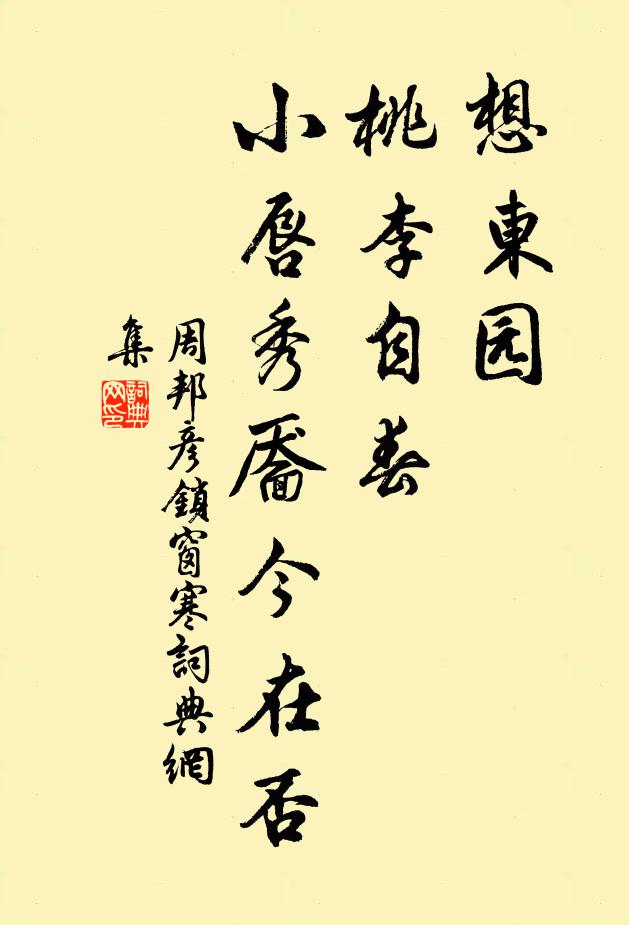 想東园
桃李自春
小唇秀靨今在否
周邦彦鎖窗寒詞典網
集
詞典
网印